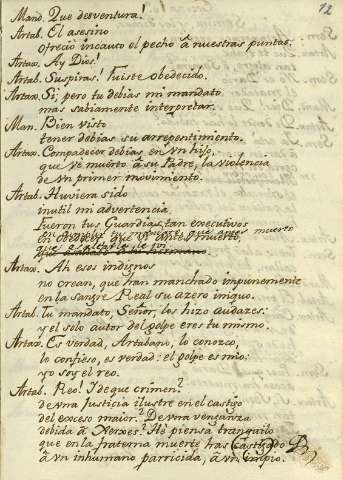 12
Mand. Que desventura!
Artab. El asesino
ofreciò incauto el pecho â nuestras puntas.
Artax. Ay Dios!
Artab. Suspiras! Fuiste obedecido.
Artax. Si; pero tu debias mi mandato
mas sabiamente interpretar.
Man. Bien visto
tener debias su arrepentimiento.
Artax. Compadecer debias en vn hijo,
que vè muerto â su Padre, la violencia
de vn primer movimiento.
Artab. Huviera sido
inutil mi advertencia
Fueron tus Guardias tan executivos
en obedecer que vi antes muerto
Artax. Ah esos indignos
no crean, que han manchado impunemente
en la sangre Real su azero iniquo.
Artab. Tu mandato, Señor, los hizo audazes:
y el solo autor del golpe eres tu mismo.
Artax. Es verdad, Artabano, lo conozco,
lo confieso, es verdad: el golpe es mio:
yo soy el reo.
Artab. Reo! I de que crimen?
de vna Justicia ilustre en el castigo
del exceso maior? De vna venganza
debida â Xerxes? Hè piensa tranquilo
que en la fraterna muerte has castigado
â vn inhumano parricida, â vn impio.